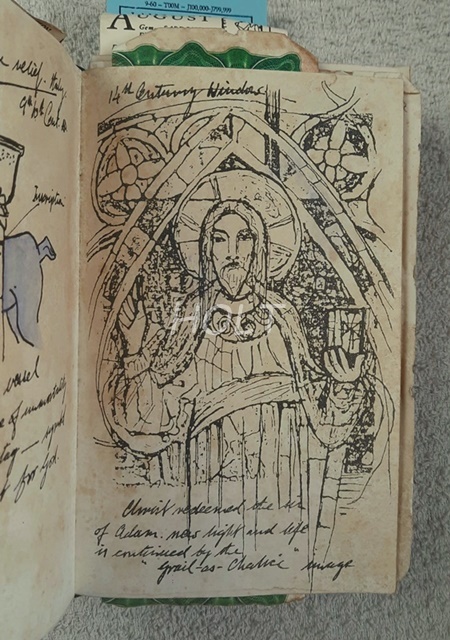 9-60 ~ T00M ~ J100,000-J799,999
AUGUST
relief. Italy
9th 10th Cent.
Inscription
vessel
of immortality
for God.
14th Century Window
HOLT
Christ redeemed the sin
of Adam. new light and life
is continued by the
"Grail-as-Chalice" image